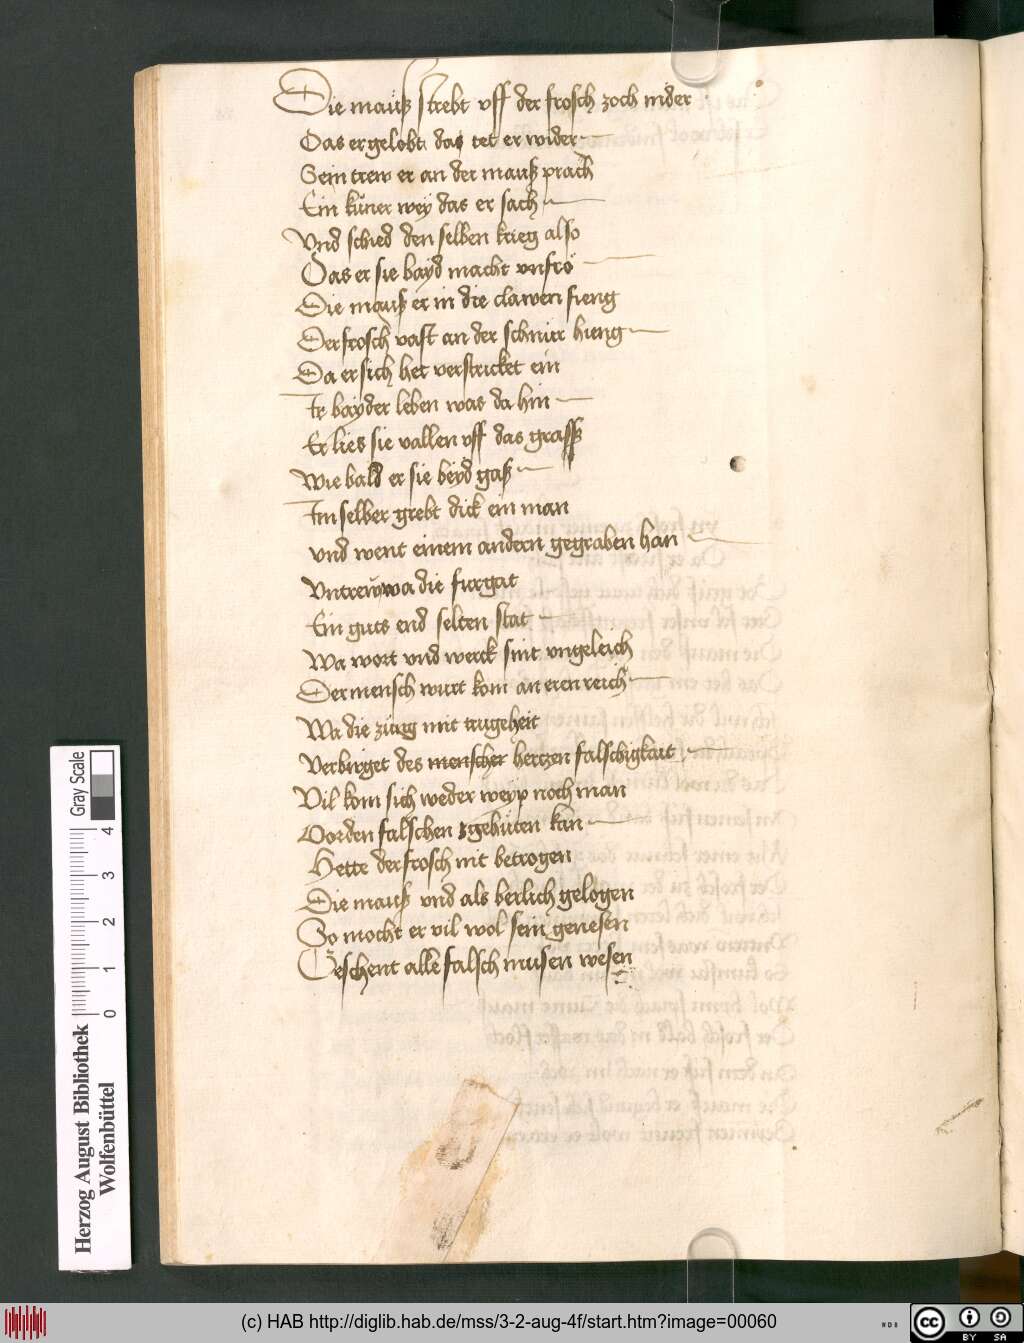 Die mauß strebt vff der frosch zoch nider
Das er gelobt das tet er wider
Sein trew er an der mauß prach
Ein küner wey das er sach
Vnd schied den selben krieg also
Das er sie bayd macht vnfro
Die mauß er in die clawen fieng
Der frosch vast an der schnür hieng
Da er sich het verstricket ein
Ir bayder leben was da hin
Er lies sie vallen vff das graß
Wie bald er sie beyd gaß
Im selber grebt dick ein man
vnd went einem andern gegraben han
Vntreẅ wa die furgat
Ein guts end selten stat
Wa wort vnd werck sint vngeleich
Der mensch wurt kom an eren reich
Wa die züng mit trugeheit
Verbirget des menscher hertzen falschigkait
Vil kom sich weder weyp noch man
Vor den falschen gehüten kan
Hette der frosch nit betrogen
Die mauß vnd als berlich gelogen
So mocht er vil wol sein genesen
Geschent alle falsch musen wesen
Herzog August Bibliothek
Wolfenbüttel
Gray Scale
0 1 2 3 4
(c) HAB http://diglib.hab.de/mss/3-2-aug-4f/start.htm?image=00060
WDB
cc
BY SA